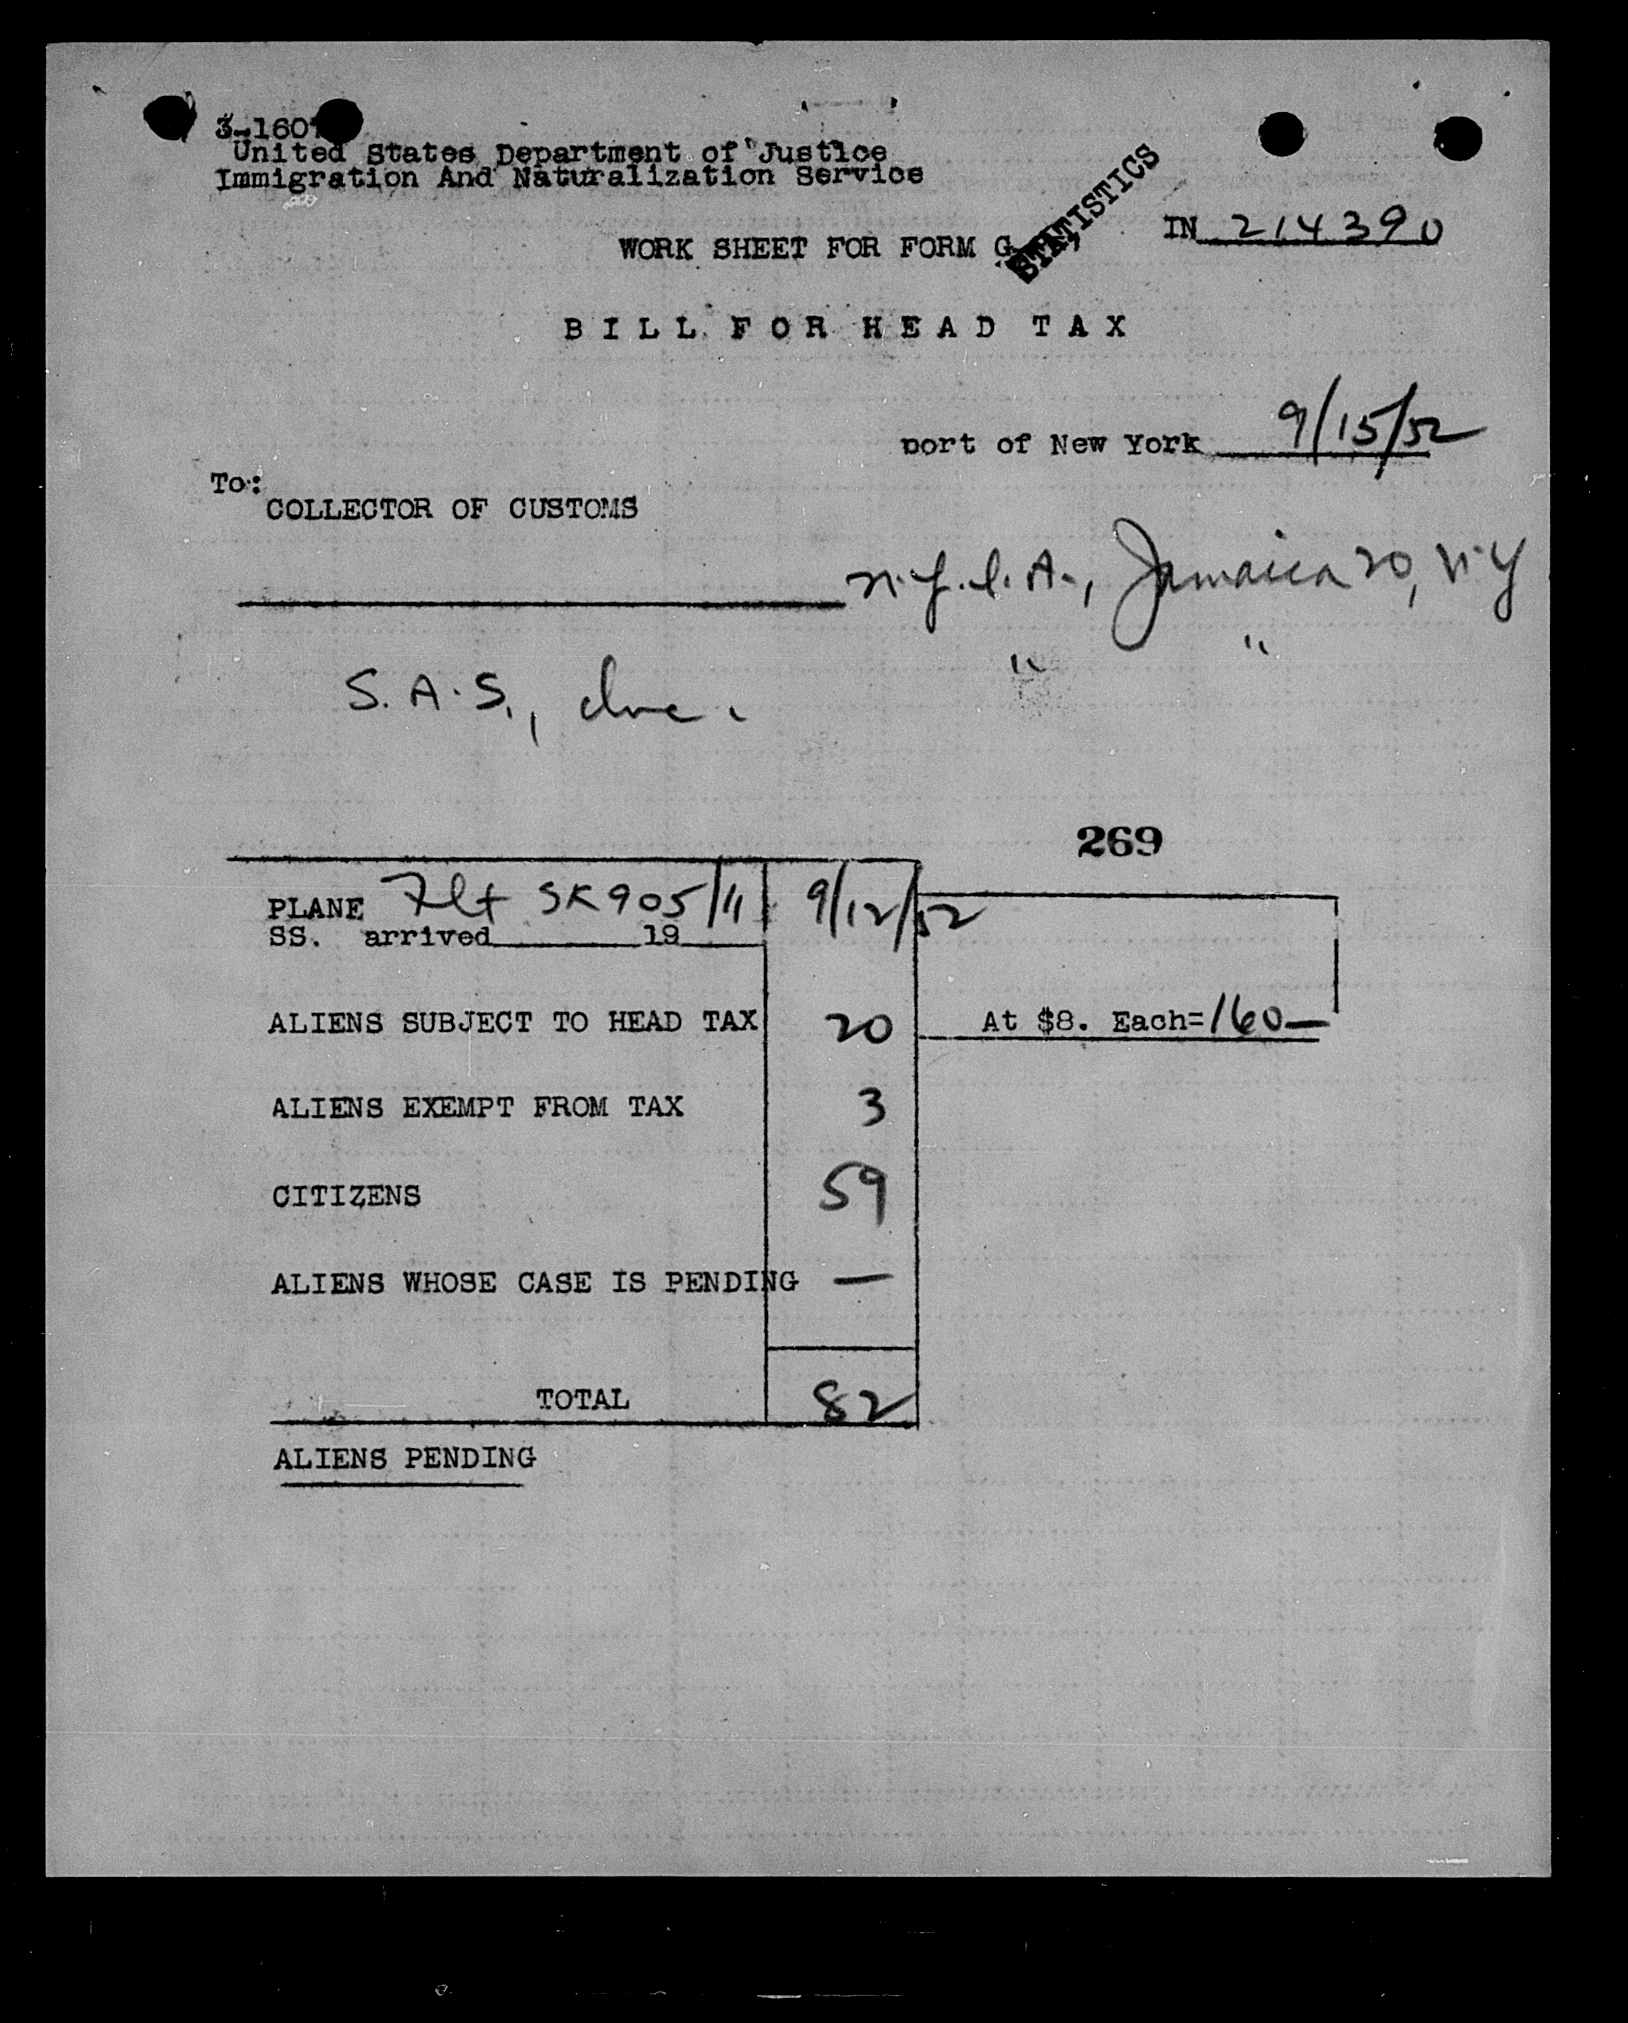 3-160
United States Department of Justice
Immigration And Naturalization Service
STATISTICS
IN 214390
WORK SHEET FOR FORM G
BILL FOR HEAD TAX
port of New York 9/15/52
To:
COLLECTOR OF CUSTOMS
N.Y.I.A., Jamaica 20, N.Y
" "
S.A.S., Inc.
269
PLANE Flt SK905/11 9/12/52
SS. arrived 19
ALIENS SUBJECT TO HEAD TAX 20 At $8. Each=160—
ALIENS EXEMPT FROM TAX 3
CITIZENS 59
ALIENS WHOSE CASE IS PENDING —
TOTAL 82
ALIENS PENDING